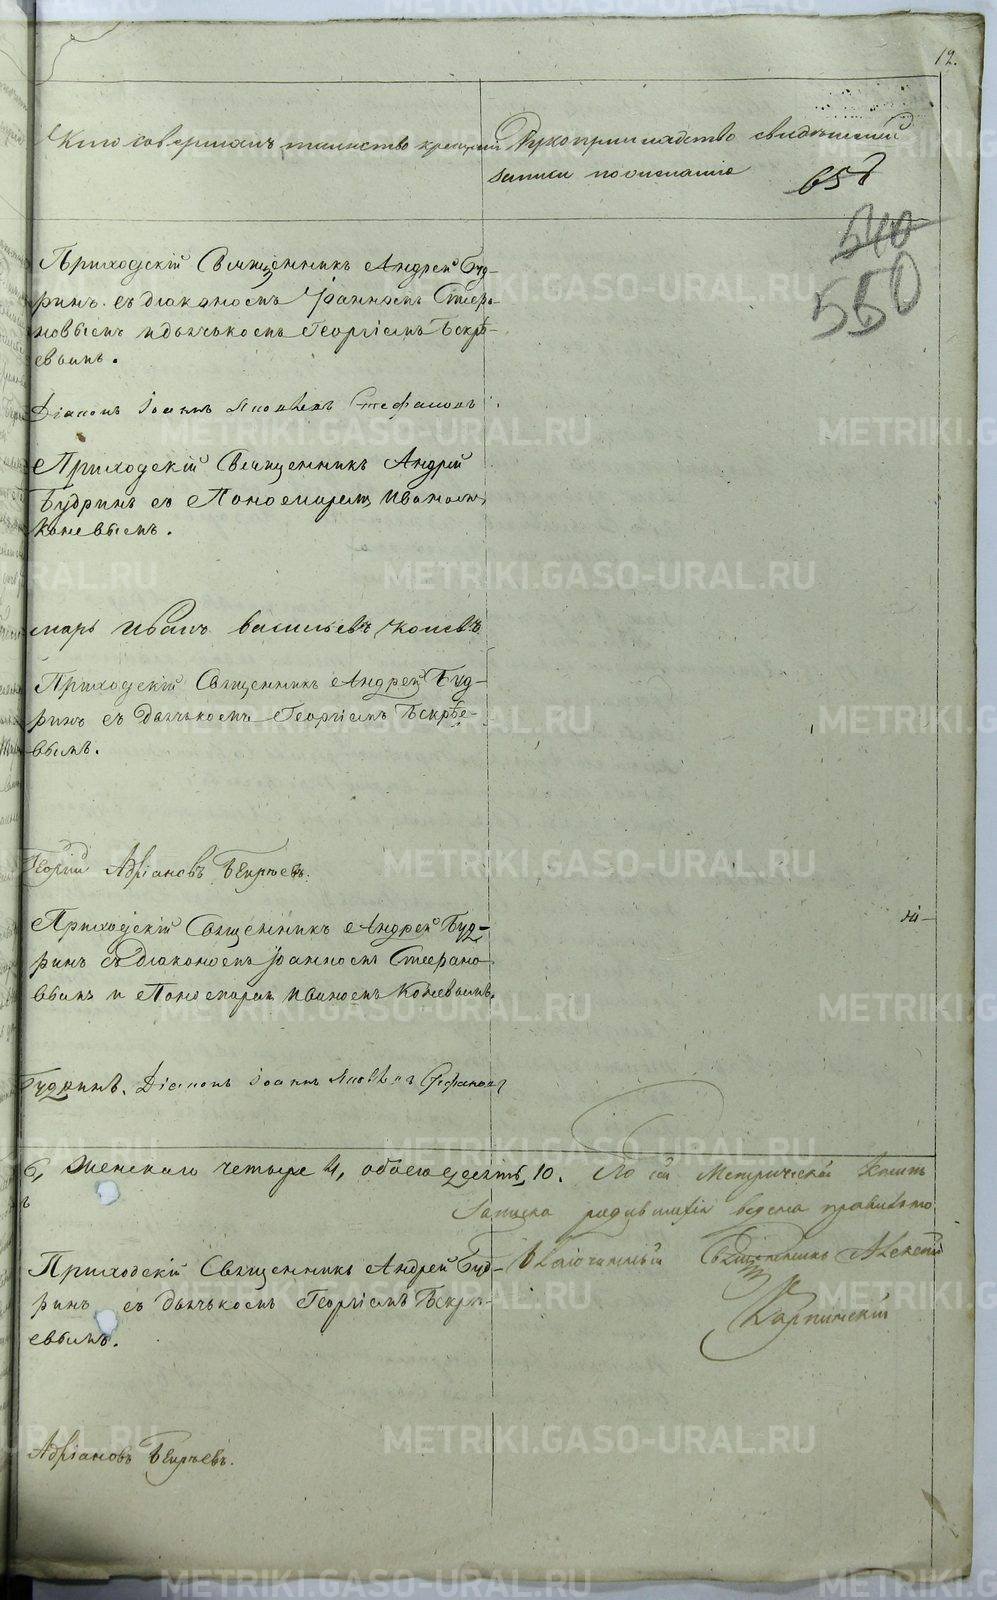 12.
Кто совершалъ таинство крещенія
Рукоприкладство свидѣтелей
записи по желанію
658
540
550
Приходскій Священникъ Андрей Буд-
ринъ съ діакономъ Іоанномъ Стефа-
новымъ и дьячькомъ Георгіемъ Бскрѣ-
евымъ.
Діаконъ Іоаннъ Яковлевъ Стефановъ
Приходскій Священникъ Андрей
Будринъ съ Пономаремъ Иваномъ
Коневымъ.
марь Иванъ Васильевъ Коневъ
Приходскій Священникъ Андрей Буд-
ринъ съ Дьячькомъ Георгіемъ Бскрѣе-
вымъ.
Георгій Адріановъ
Приходскій Священникъ Андрей Буд-
ринъ съ Діакономъ Іоанномъ Стефано-
вымъ и Пономаремъ Иваномъ Коневымъ.
Будринъ. Діаконъ Іоаннъ Яковлевъ Стефановъ
6, Женскаго четыре 4, обоего десять, 10.
По сей Метрической Книгѣ
Записка родившихся ведена правильно
Приходскій Священникъ Андрей Буд-
ринъ съ дьячькомъ Георгіемъ Бскрѣ-
евымъ.
Благочинный Священникъ Алексей
Карпинскій
Адріановъ
METRIKI.GASO-URAL.RU